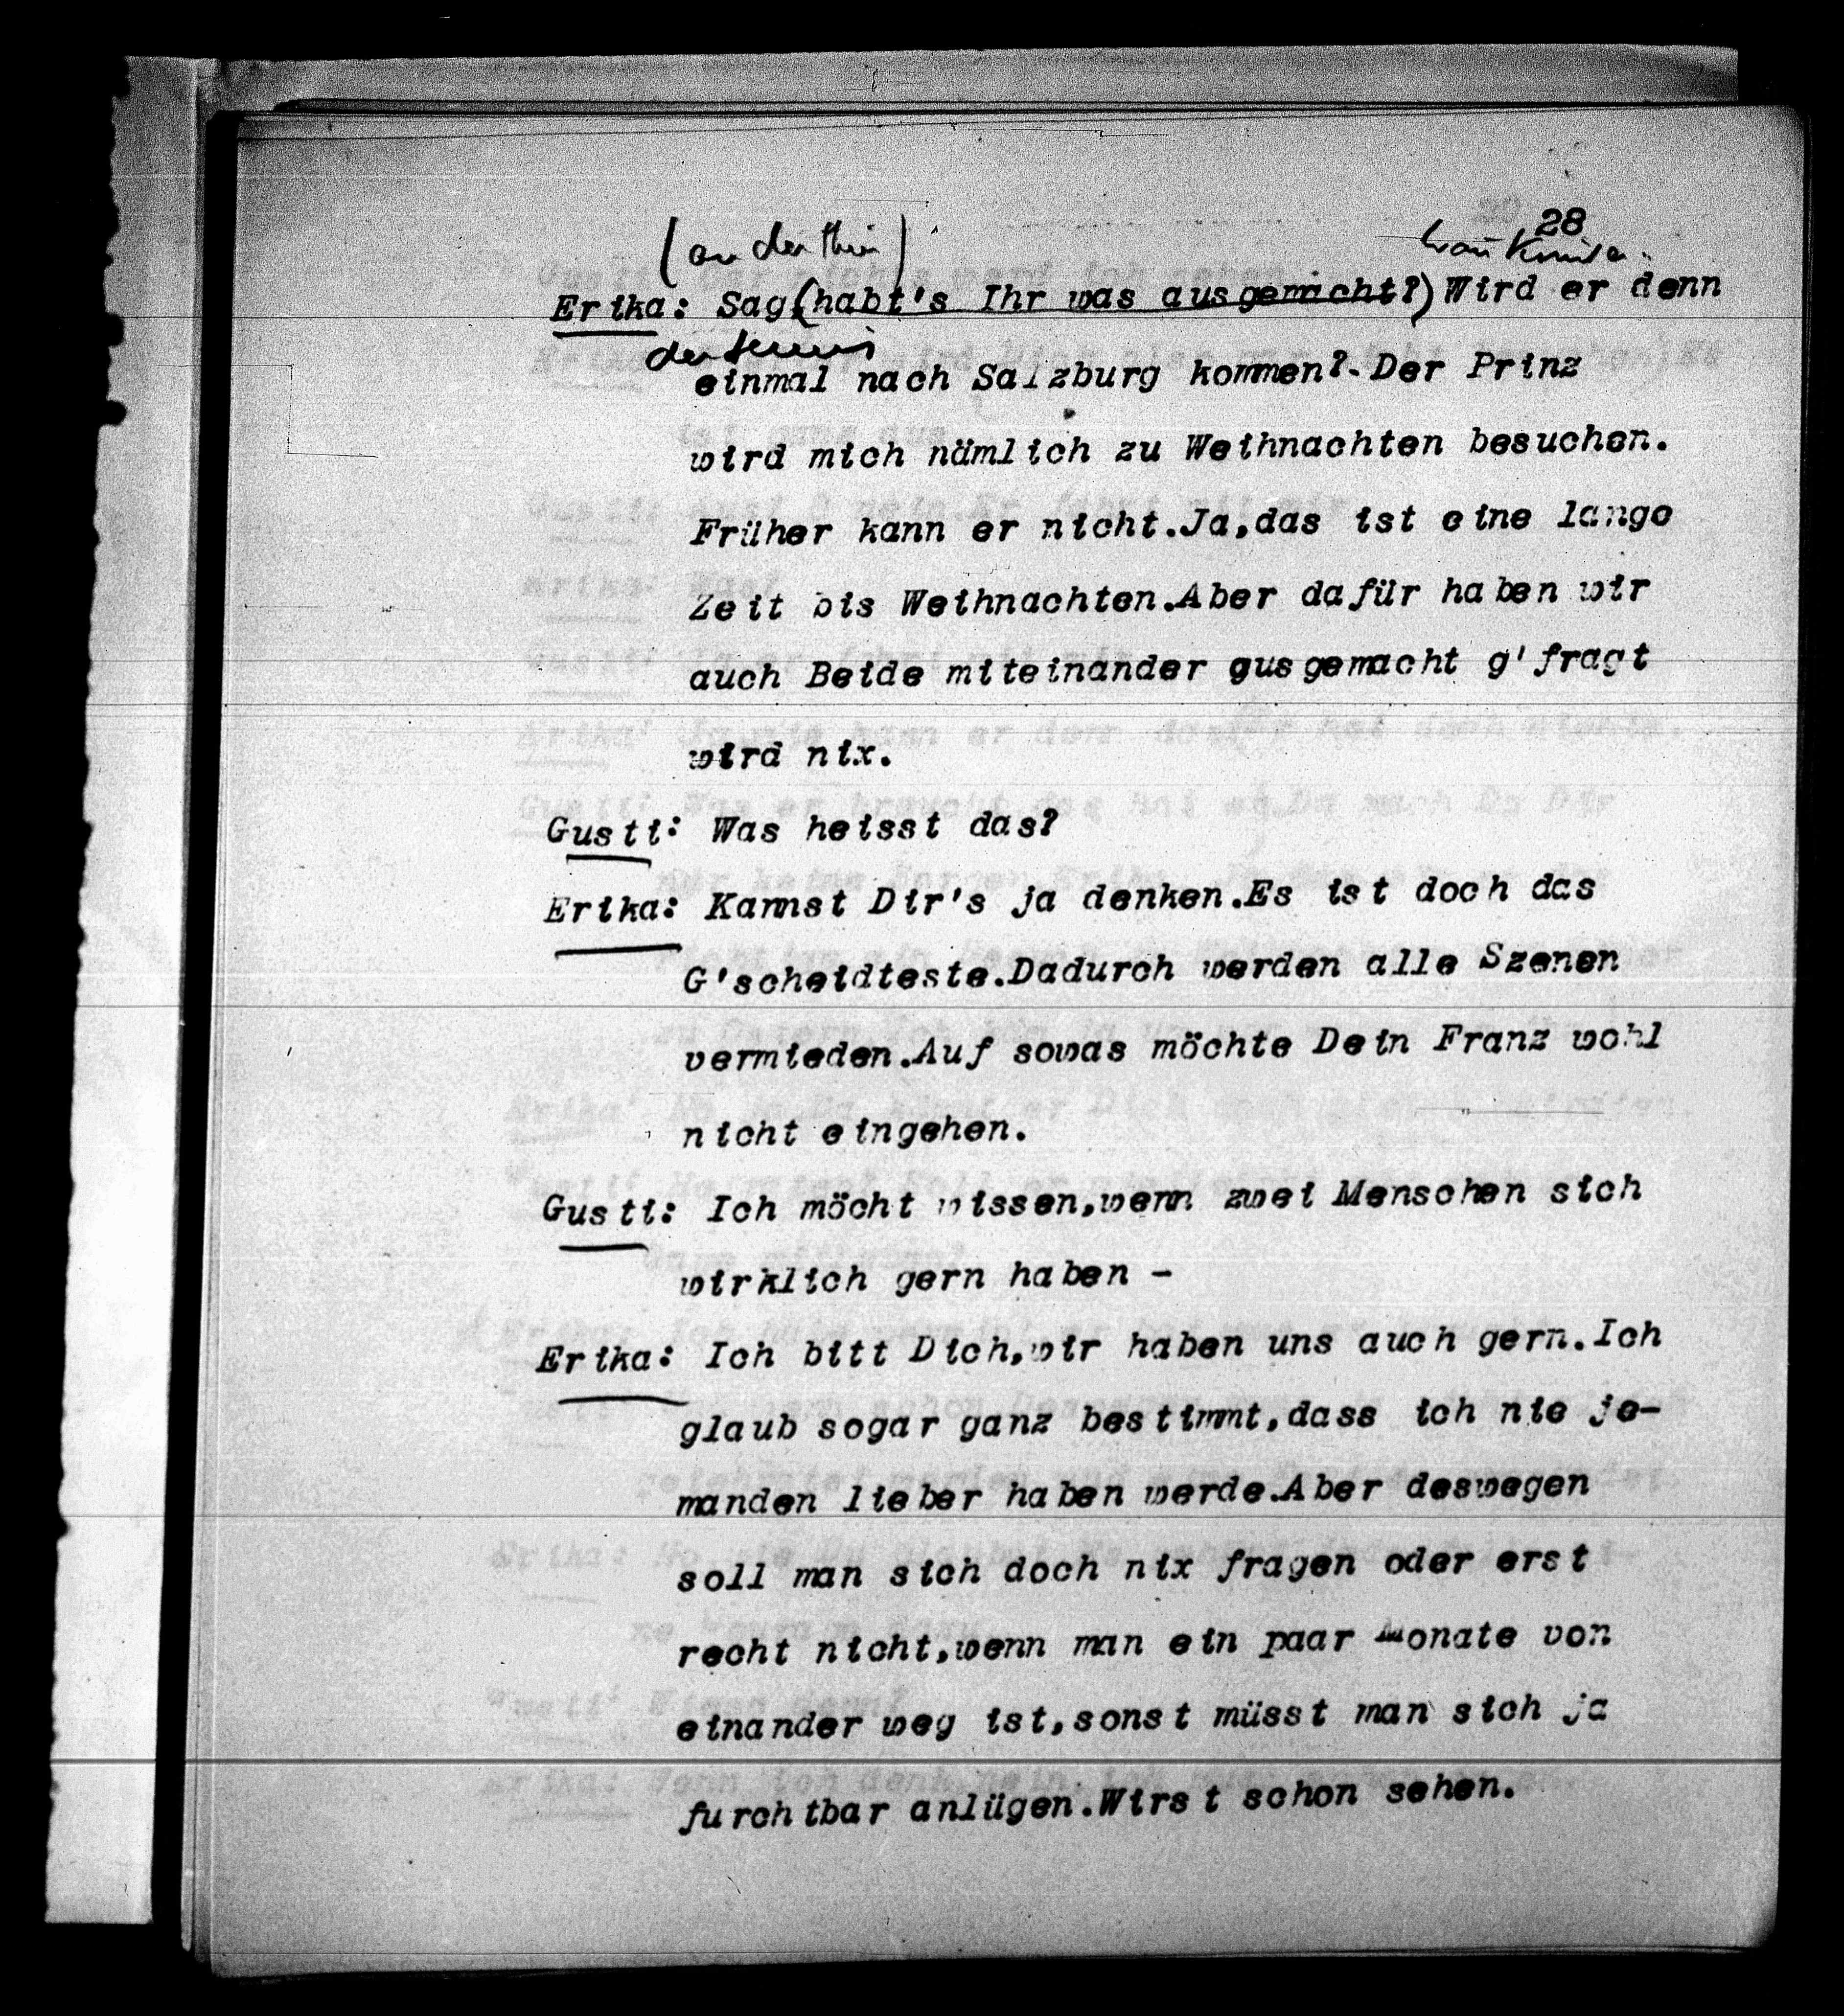 28
(an der Thür)
Erika: Sag(habt's Ihr was ausgemacht?)Wird er denn
einmal nach Salzburg kommen?-Der Prinz
wird mich nämlich zu Weihnachten besuchen.
Früher kann er nicht.Ja,das ist eine lange
Zeit bis Weihnachten.Aber dafür haben wir
auch Beide miteinander gusgemacht g'fragt
wird nix.
Gusti: Was heisst das?
Erika: Kannst Dir's ja denken.Es ist doch das
G'scheidteste.Dadurch werden alle Szenen
vermieden.Auf sowas möchte Dein Franz wohl
nicht eingehen.
Gusti: Ich möcht wissen,wenn zwei Menschen sich
wirklich gern haben -
Erika: Ich bitt Dich,wir haben uns auch gern.Ich
glaub sogar ganz bestimmt,dass ich nie je-
manden lieber haben werde.Aber deswegen
soll man sich doch nix fragen oder erst
recht nicht,wenn man ein paar Monate von
einander weg ist,sonst müsst man sich ja
furchtbar anlügen.Wirst schon sehen.